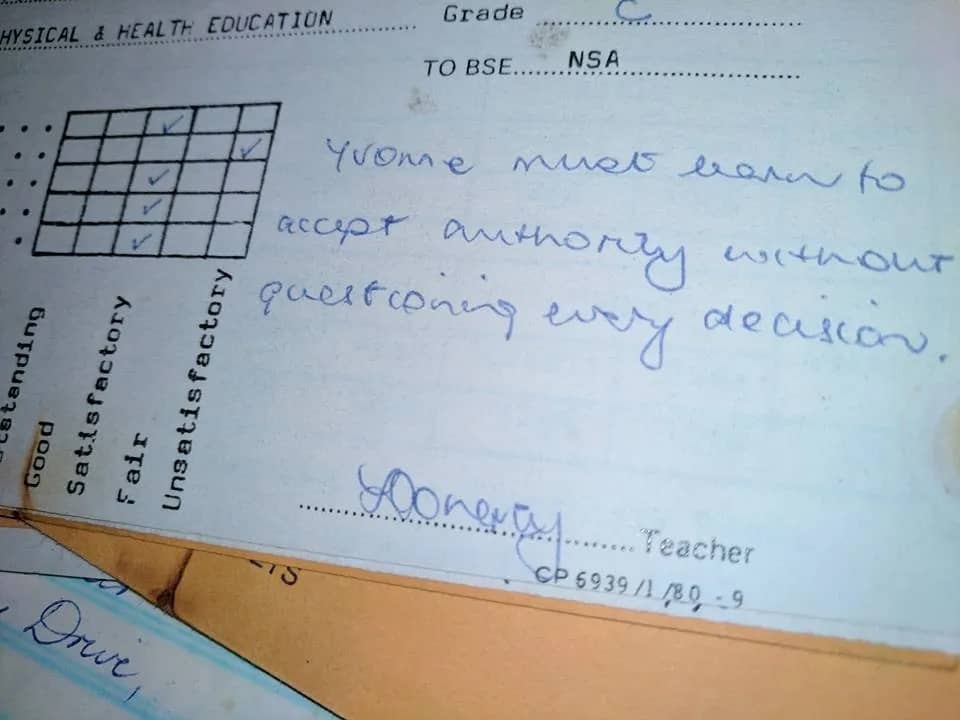 HYSICAL & HEALTH EDUCATION
Grade C
TO BSE NSA
Yvonne must learn to
accept authority without
questioning every decision.
tstanding
Good
Satisfactory
Fair
Unsatisfactory
Teacher
CP 6939/1/80 - 9
Drive,